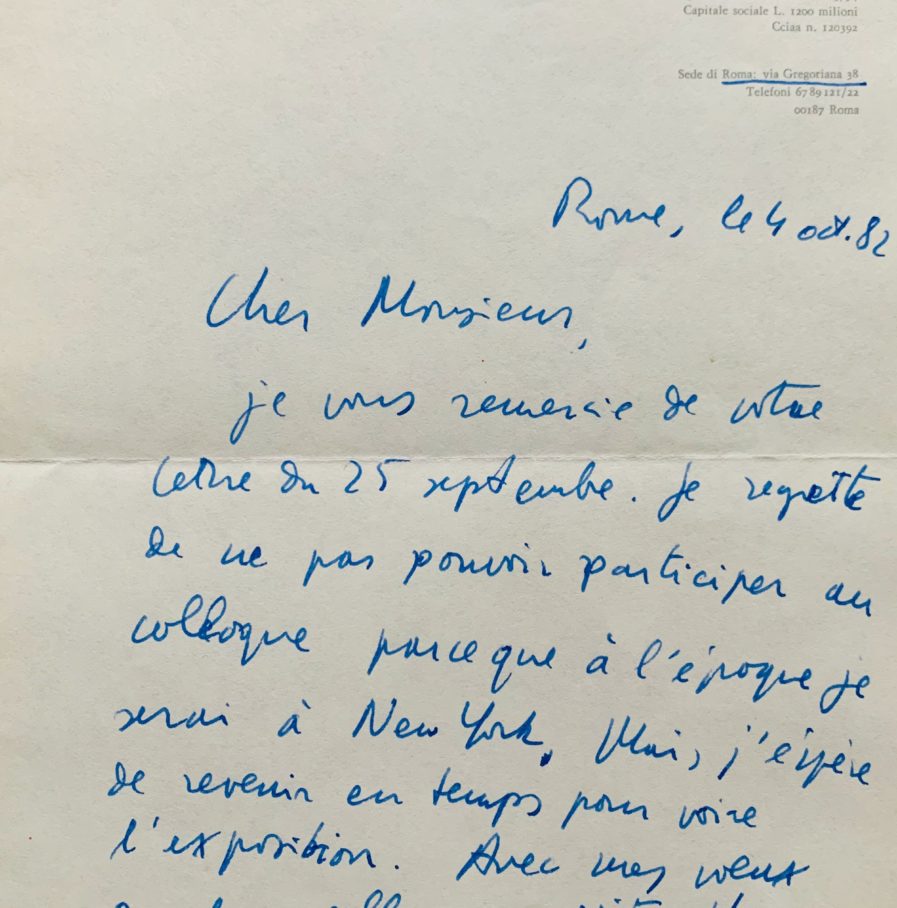 Capitale sociale L. 1200 milioni
Cciaa n. 120392
Sede di Roma: via Gregoriana 38
Telefoni 6789121/22
00187 Roma
Rome, le 4 oct. 82
Cher Monsieur,
je vous remercie de votre
lettre du 25 septembre. Je regrette
de ne pas pouvoir participer au
colloque parce que à l'époque je
serai à New York. Mais j'éspère
de revenir en temps pour voire
l'exposition. Avec mes voeux